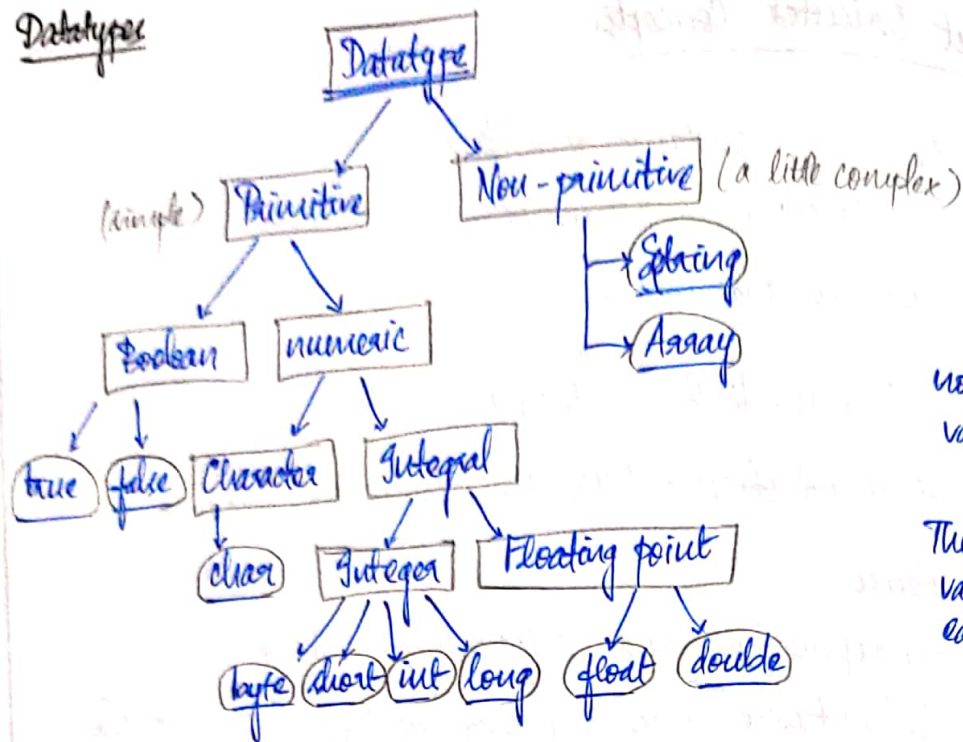 Datatypes
Datatype
(simple) Primitive
Non-primitive (a little complex)
String
Array
Boolean
numeric
true
false
Character
Integral
char
Integer
Floating point
byte
short
int
long
float
double